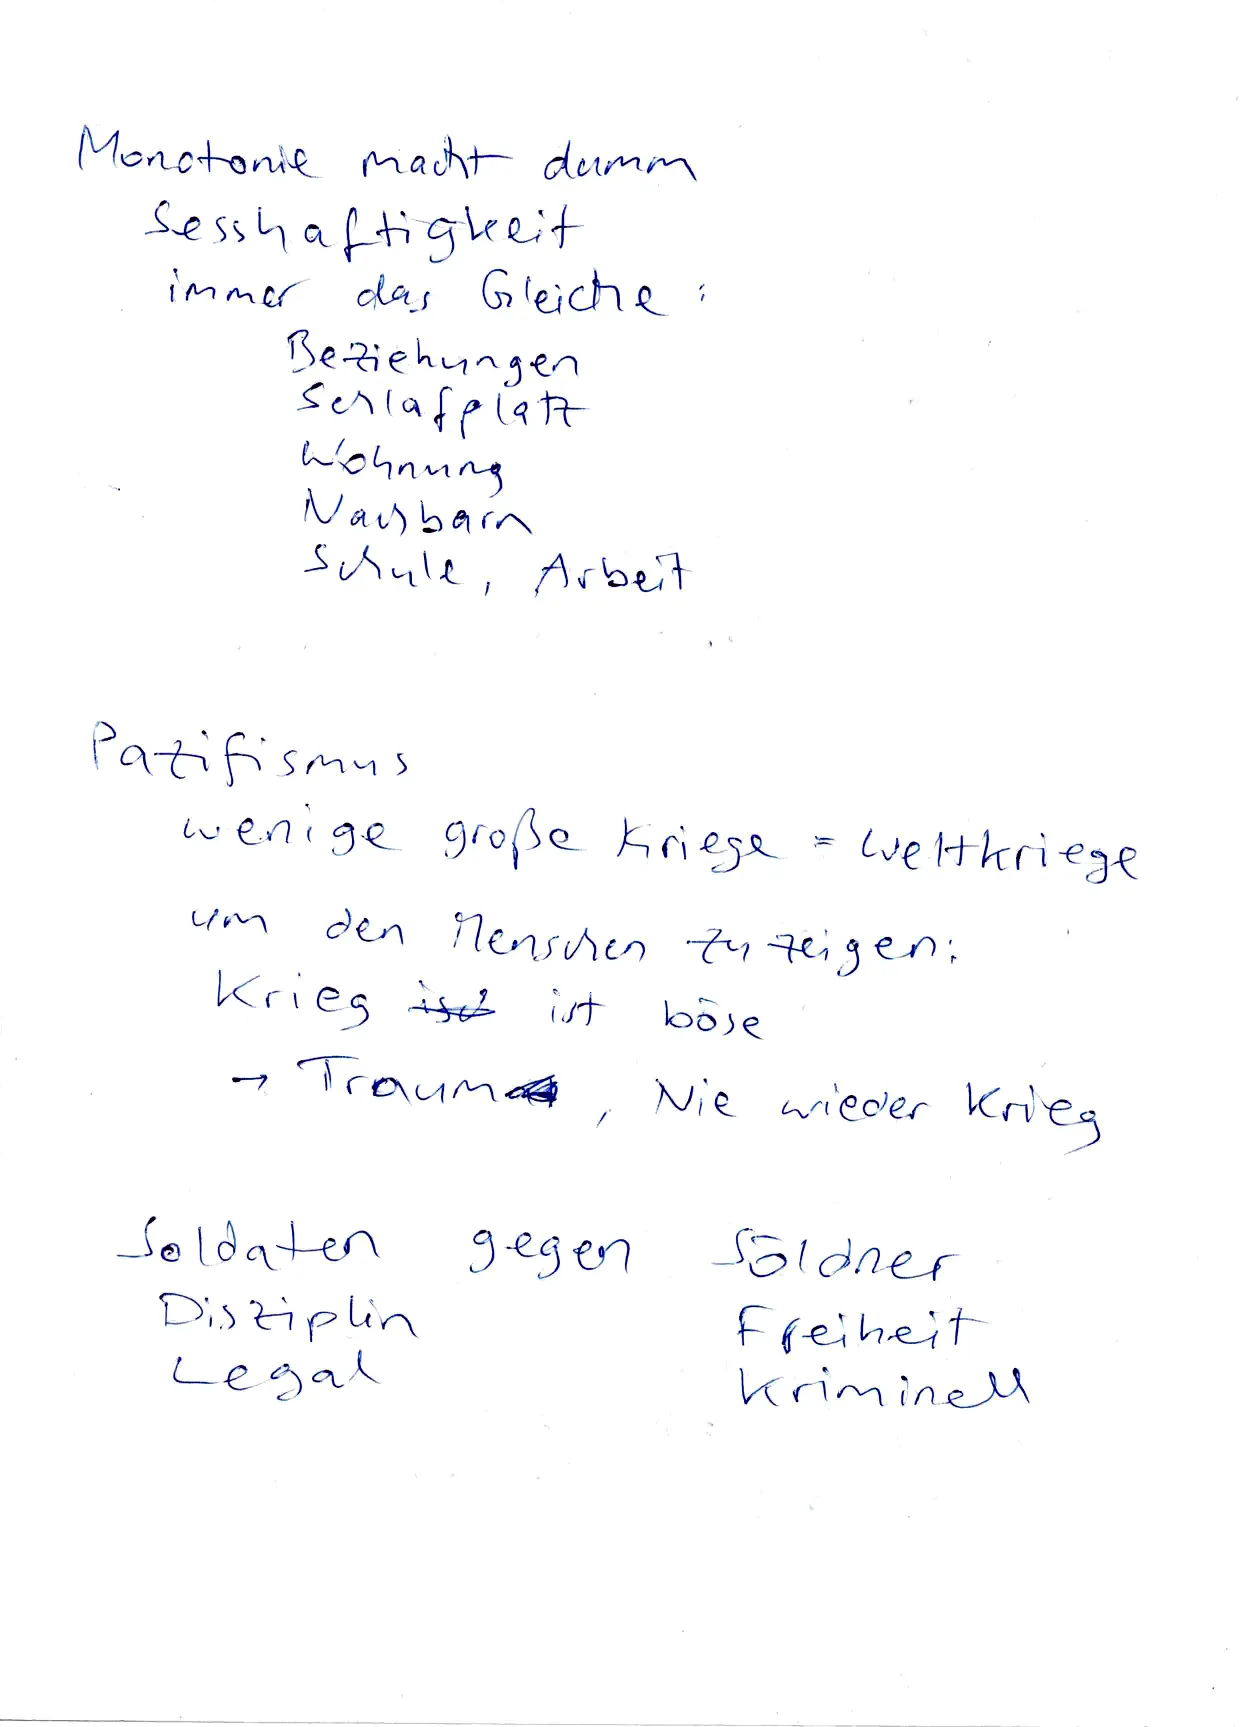 Monotonie macht dumm
Sesshaftigkeit
immer das Gleiche:
Beziehungen
Schlafplatz
Wohnung
Nachbarn
Schule, Arbeit
Pazifismus
wenige große Kriege = Weltkriege
um den Menschen zu zeigen:
Krieg ist böse
→ Traum, Nie wieder Krieg
Soldaten gegen Söldner
Disziplin Freiheit
Legal Kriminell